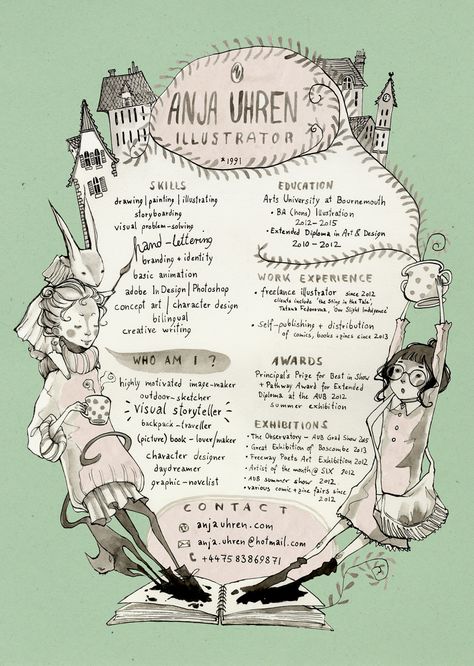 ANJA UHREN
ILLUSTRATOR
*1991
SKILLS
drawing | painting | illustrating
storyboarding
visual problem-solving
hand-lettering
branding + identity
basic animation
adobe InDesign | Photoshop
concept art | character design
bilingual
creative writing
WHO AM I ?
highly motivated image-maker
outdoor-sketcher
visual storyteller
backpack-traveller
(picture) book-lover/maker
character designer
daydreamer
graphic-novelist
EDUCATION
Arts University at Bournemouth
• BA (hons) Illustration
2012-2015
• Extended Diploma in Art & Design
2010-2012
WORK EXPERIENCE
• freelance illustrator since 2012
clients include 'the Sting in the Tale',
Tatana Fedorovna, 'One Slight Indulgence'
• Self-publishing + distribution
of comics, books + zines since 2013
AWARDS
Principal's Prize for Best in Show
+ Pathway Award for Extended
Diploma at the AUB 2012
summer exhibition
EXHIBITIONS
• The Observatory - AUB Grad Show 2015
• Great Exhibition of Boscombe 2013
• Freeway Poets Art Exhibition 2012
• Artist of the month @ SIX 2012
• AUB summer show 2012
• various comic + zine fairs since
2012
CONTACT
anjauhren.com
anja.uhren@hotmail.com
+447583869871